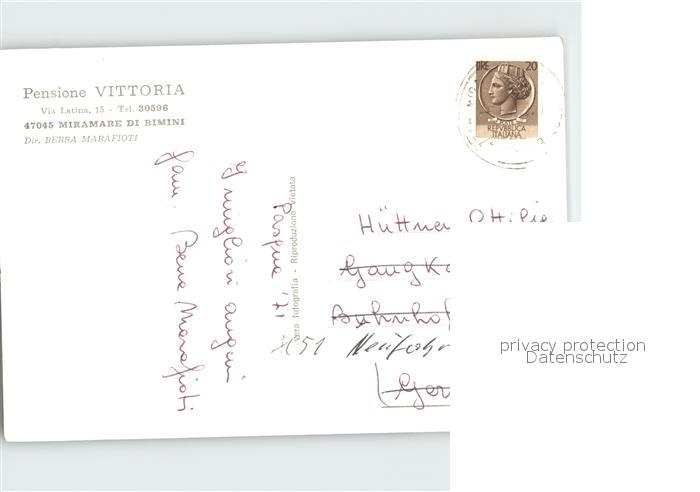 Pensione VITTORIA
Via Latina, 15 - Tel. 30596
47045 MIRAMARE DI RIMINI
Dir. BERRA MARAFIOTI
LIRE 20
REPVBBLICA
ITALIANA
vera fotografia - Riproduzione vietata
Pasqua '71
I migliori auguri
fam. Berra Marafioti
Hüttner Ottilie
Gangko
Bahnhof
8051 Neufahrn
(Ger
privacy protection
Datenschutz